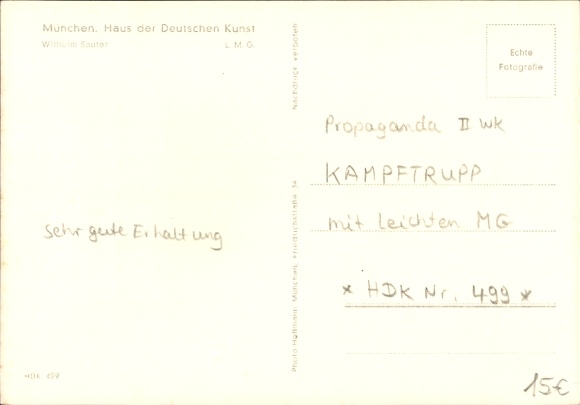 München, Haus der Deutschen Kunst
Wilhelm Sauter L. M. G.
Sehr gute Erhaltung
HDK 499
Nachdruck verboten
Photo-Hoffmann, München, Friedrichstraße 34
Echte
Fotografie
Propaganda II WK
KAMPFTRUPP
mit leichten MG
* HDK Nr. 499 *
15€